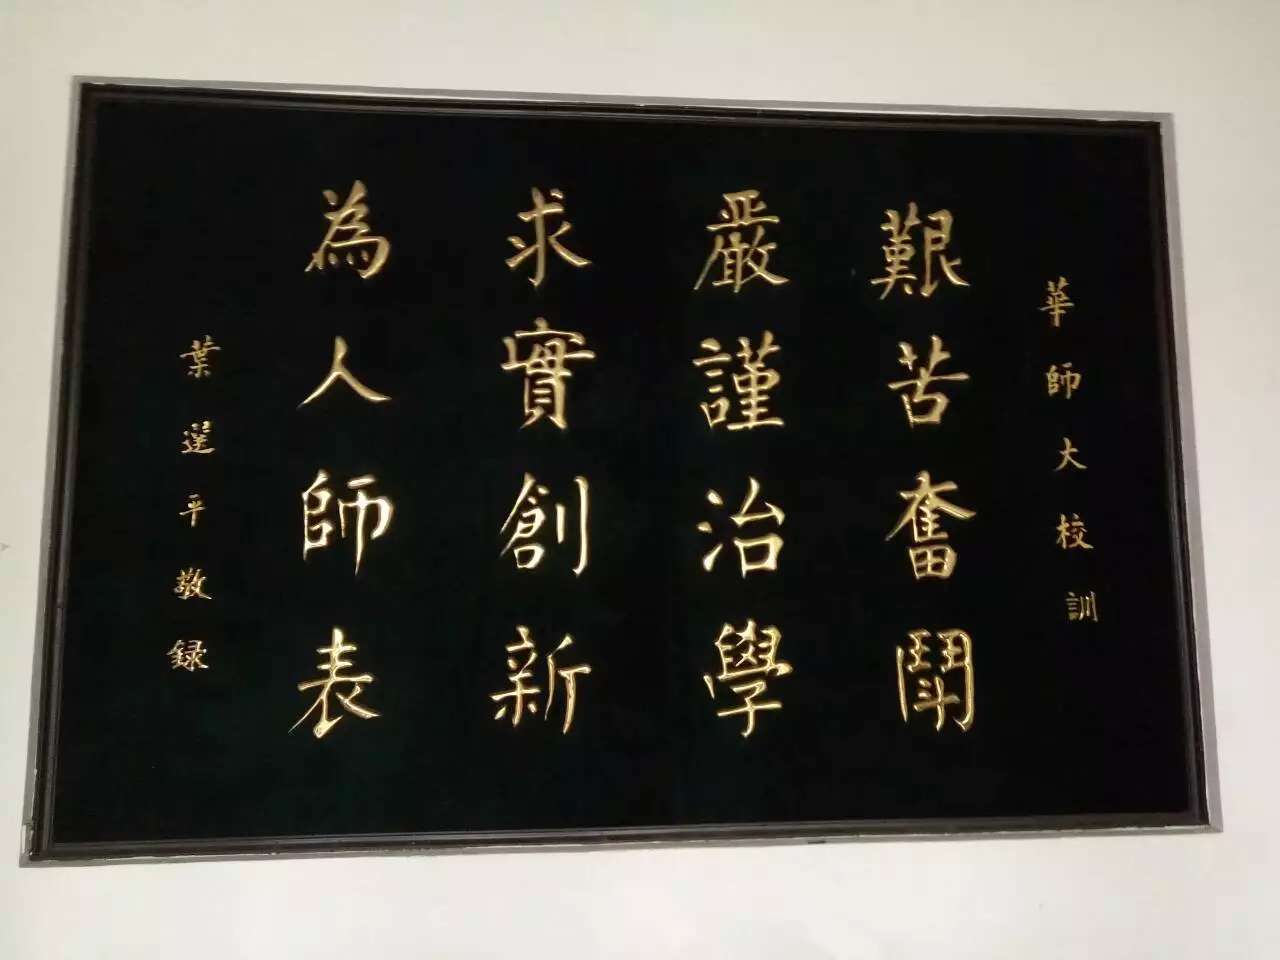 華師大校訓
艱苦奮鬭
嚴謹治學
求實創新
為人師表
葉選平敬録